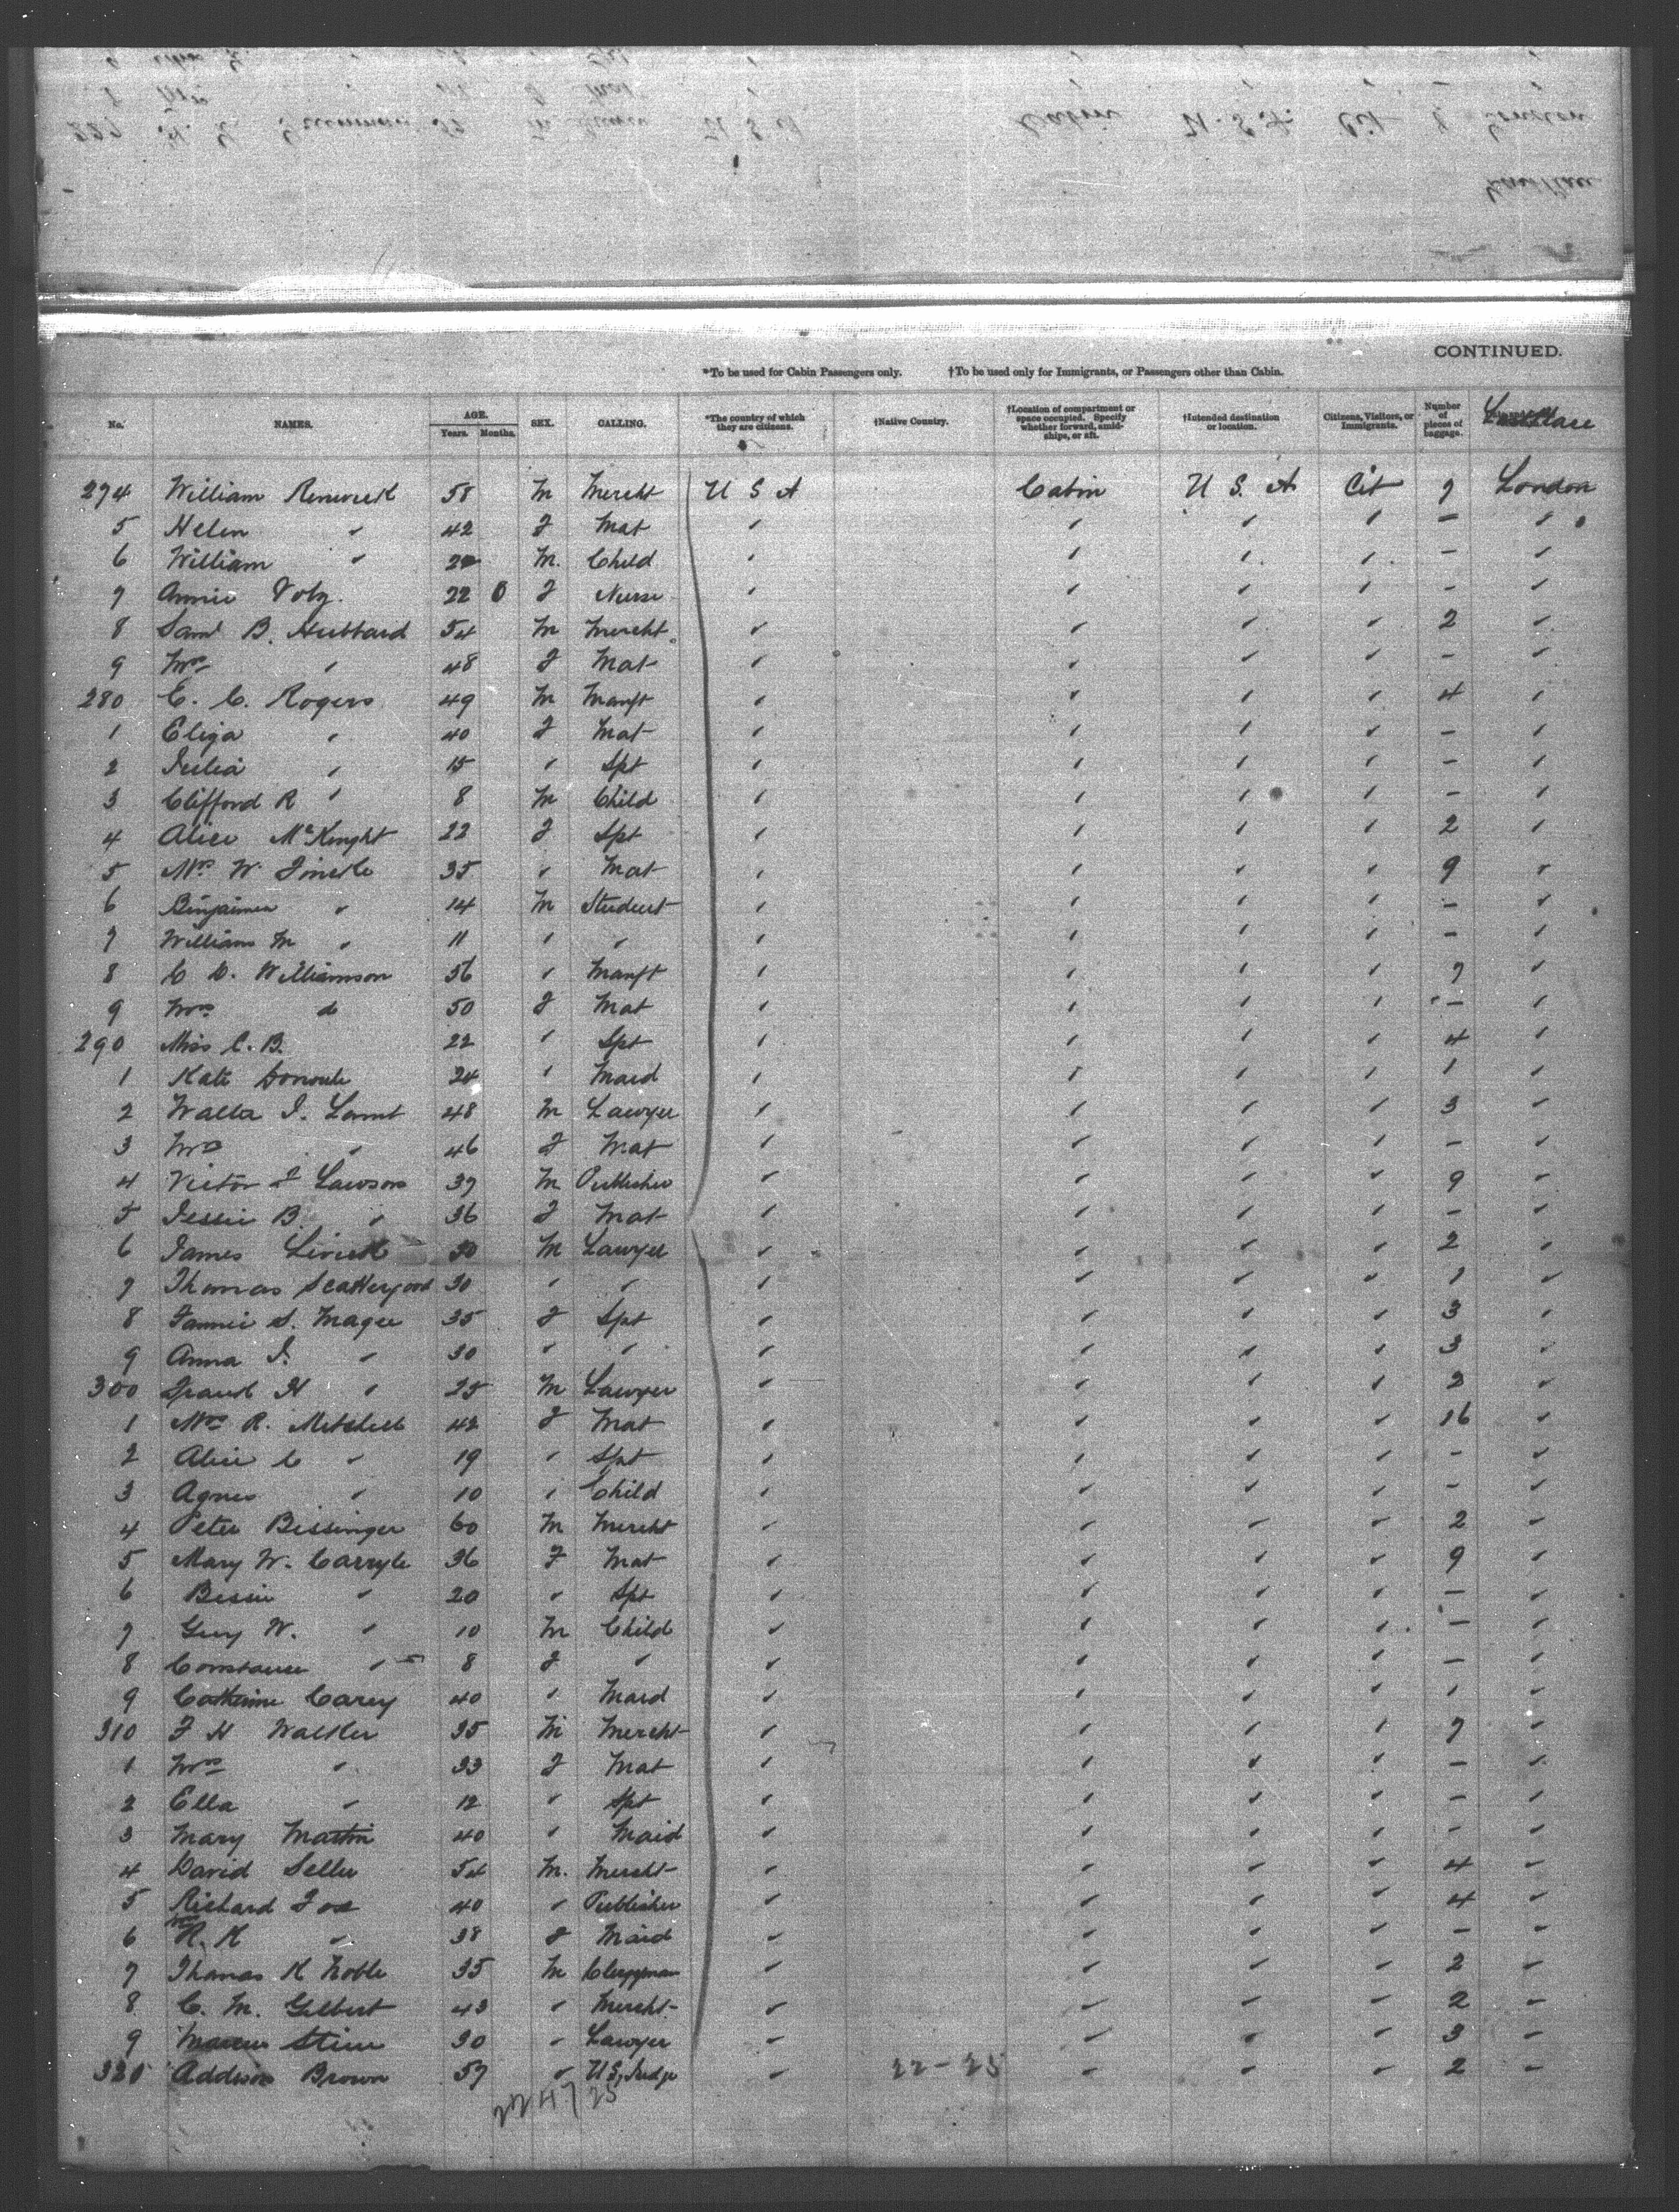 CONTINUED.
*To be used for Cabin Passengers only. †To be used only for Immigrants, or Passengers other than Cabin.
No. NAMES. AGE. Years. Months. SEX. CALLING. *The country of which they are citizens. †Native Country. †Location of compartment or space occupied. Specify whether forward, amidships, or aft. †Intended destination or location. Citizens, Visitors, or Immigrants. Number of pieces of baggage.
274 William Renwick 58 M Mercht U S A Cabin U S. A Cit 7 London
5 Helen " 42 F Mat " " " " - "
6 William " M. Child " " " " - "
7 Annie Volz. 22 F Nurse " " " " - "
8 Saml B. Hubbard 54 M Mercht " " " " 2 "
9 Mrs " 48 F Mat " " " " - "
280 C. C. Rogers 49 M Manft " " " " 4 "
1 Eliza " 40 F Mat " " " " - "
2 Julia " 15 " Spt " " " " - "
3 Clifford R " 8 M Child " " " " - "
4 Alice McKnght 22 F Spt " " " " 2 "
5 Mrs W. 35 " Mat " " " " 9 "
6 Binjaimen " 14 M Student " " " " - "
7 William M " 11 " " " " " " - "
8 C D. Williamson 56 " Manft " " " " 7 "
9 Mrs do 50 F Mat " " " " - "
290 Miss C. B. 22 " Spt " " " " 4 "
1 Kate 24 " Maid " " " " 1 "
2 Walter J. 48 M Lawyer " " " " 3 "
3 Mrs " 46 F Mat " " " " - "
4 Victor F Lawson 37 M Publisher " " " " 9 "
5 Jessie B. " 36 F Mat " " " " - "
6 James 30 M Lawyer " " " " 2 "
7 Thomas Scattergood 30 " " " " " " 1 "
8 Fannie S. Magee 35 F Spt " " " " 3 "
9 Anna J. " 30 " " " " " " 3 "
300 Frank H " 25 M Lawyer " " " " 2 "
1 Mrs R. Mitchell 42 F Mat " " " " 16 "
2 Alice C " 19 " Spt " " " " - "
3 Agnes " 10 " Child " " " " - "
4 Peter Bissinger 60 M Mercht " " " " 2 "
5 Mary W. Carryle 36 F Mat " " " " 9 "
6 Bessie " 20 " Spt " " " " - "
7 Guy W. " 10 M Child " " " " - "
8 Constance " 8 F " " " " " - "
9 Catherine Carey 40 " Maid " " " " 1 "
310 F H Walker 35 M Mercht " " " " 7 "
1 Mrs " 33 F Mat " " " " - "
2 Ella " 12 " Spt " " " " - "
3 Mary Martin 40 " Maid " " " " - "
4 David Seller 54 M. Mercht " " " " 4 "
5 Richard Fox 40 " Publisher " " " " 4 "
6 Mrs R. K " 38 F Maid " " " " - "
7 Thomas K Noble 35 M Clergyman " " " " 2 "
8 C. M. Gilbert 43 " Mercht " " " " 2 "
9 Marcus Stine 30 " Lawyer " " " " 3 "
320 Addison Brown 57 " U S, Judge " 22-25 " " " 2 "